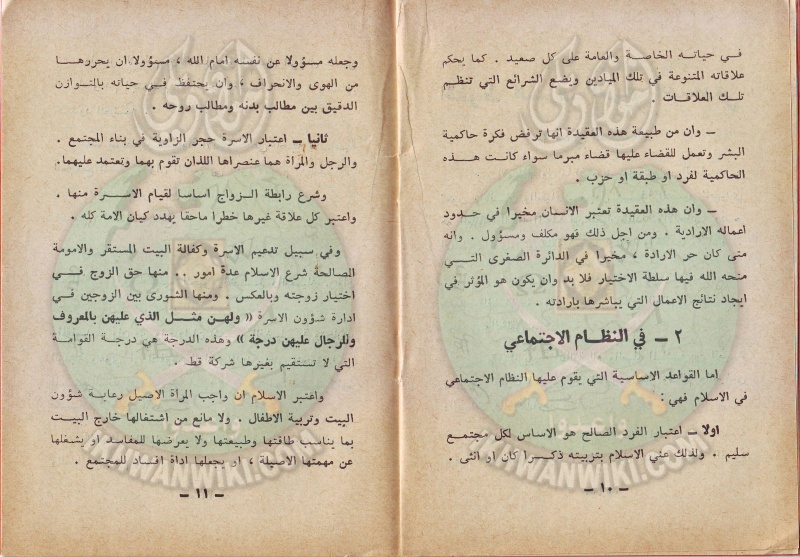 في حياته الخاصة والعامة على كل صعيد . كما يحكم
علاقاته المتنوعة في تلك الميادين ويضع الشرائع التي تنظم
تلك العلاقات .
— وان من طبيعة هذه العقيدة انها ترفض فكرة حاكمية
البشر وتعمل للقضاء عليها قضاء مبرما سواء كانت هذه
الحاكمية لفرد او طبقة او حزب .
— وان هذه العقيدة تعتبر الانسان مخيرا في حدود
اعماله الارادية . ومن اجل ذلك فهو مكلف ومسؤول . وانه
متى كان حر الارادة ، مخيرا في الدائرة الصغرى التي
منحه الله فيها سلطة الاختيار فلا بد وان يكون هو المؤثر في
ايجاد نتائج الاعمال التي يباشرها بارادته .
٢ — في النظام الاجتماعي
اما القواعد الاساسية التي يقوم عليها النظام الاجتماعي
في الاسلام فهي :
اولا — اعتبار الفرد الصالح هو الاساس لكل مجتمع
سليم . ولذلك عني الاسلام بتربيته ذكرا كان او انثى .
— ١٠ —
وجعله مسؤولا عن نفسه امام الله ، مسؤولا ان يحررها
من الهوى والانحراف ، وان يحتفظ في حياته بالتوازن
الدقيق بين مطالب بدنه ومطالب روحه .
ثانيا — اعتبار الاسرة حجر الزاوية في بناء المجتمع .
والرجل والمرأة هما عنصراها اللذان تقوم بهما وتعتمد عليهما.
وشرع رابطة الزواج اساسا لقيام الاسرة منها .
واعتبر كل علاقة غيرها خطرا ماحقا يهدد كيان الامة كله .
وفي سبيل تدعيم الاسرة وكفالة البيت المستقر والامومة
الصالحة شرع الاسلام عدة امور .. منها حق الزوج في
اختيار زوجته وبالعكس . ومنها الشورى بين الزوجين في
ادارة شؤون الاسرة « ولهن مثل الذي عليهن بالمعروف
وللرجال عليهن درجة » وهذه الدرجة هي درجة القوامة
التي لا تستقيم بغيرها شركة قط .
واعتبر الاسلام ان واجب المرأة الاصيل رعاية شؤون
البيت وتربية الاطفال . ولا مانع من اشتغالها خارج البيت
بما يناسب طاقتها وطبيعتها ولا يعرضها للمفاسد او يشغلها
عن مهمتها الاصيلة ، او يجعلها اداة افساد للمجتمع .
— ١١ —